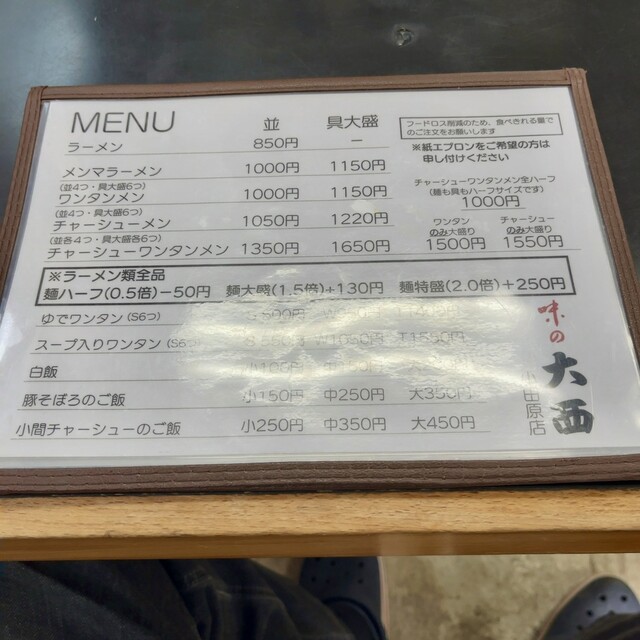 MENU 並 具大盛
ラーメン 850円 −
メンマラーメン 1000円 1150円
(並4つ・具大盛6つ)
ワンタンメン 1000円 1150円
(並4つ・具大盛6つ)
チャーシューメン 1050円 1220円
(並各4つ・具大盛各6つ)
チャーシューワンタンメン 1350円 1650円
フードロス削減のため、食べきれる量で
のご注文をお願いします
※紙エプロンをご希望の方は
申し付けください
チャーシューワンタンメン全ハーフ
(麺も具もハーフサイズです)
1000円
ワンタン チャーシュー
のみ大盛り のみ大盛り
1500円 1550円
※ラーメン類全品
麺ハーフ(0.5倍)−50円 麺大盛(1.5倍)+130円 麺特盛(2.0倍)+250円
ゆでワンタン(S6つ)
スープ入りワンタン(S6つ
白飯
豚そぼろのご飯 小150円 中250円 大350円
小間チャーシューのご飯 小250円 中350円 大450円
味の大西
小田原店